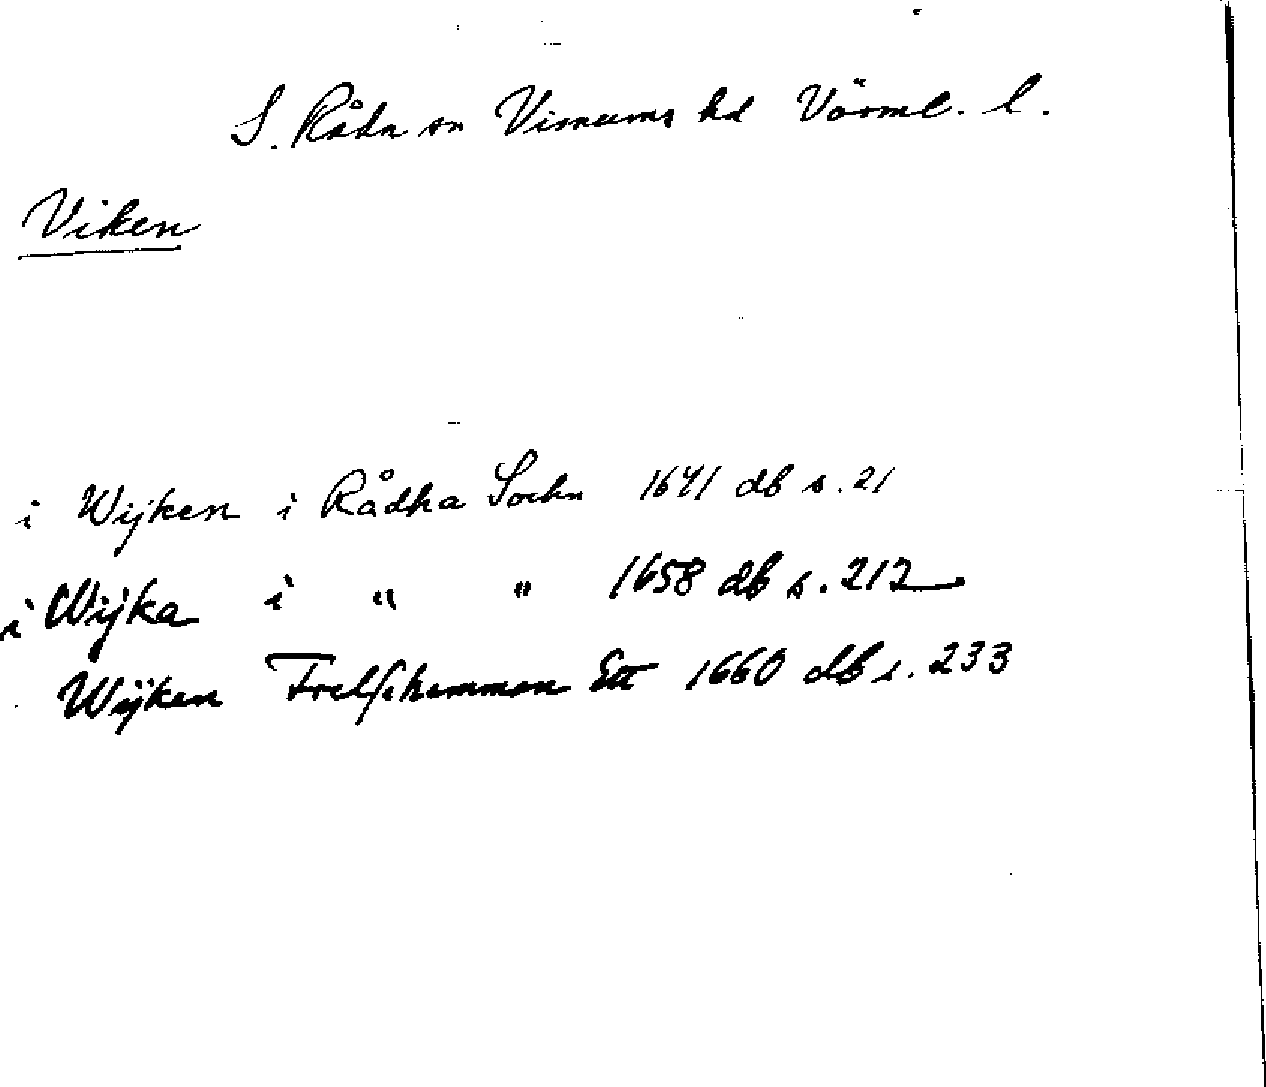 S. Råda sn Visnums hd Värml. l.
Viken
i Wijken i Rådha Sochn 1641 db s. 21
i Wijka i " " 1658 db s. 212
Wijken Frelsehemman Ett 1660 db s. 233